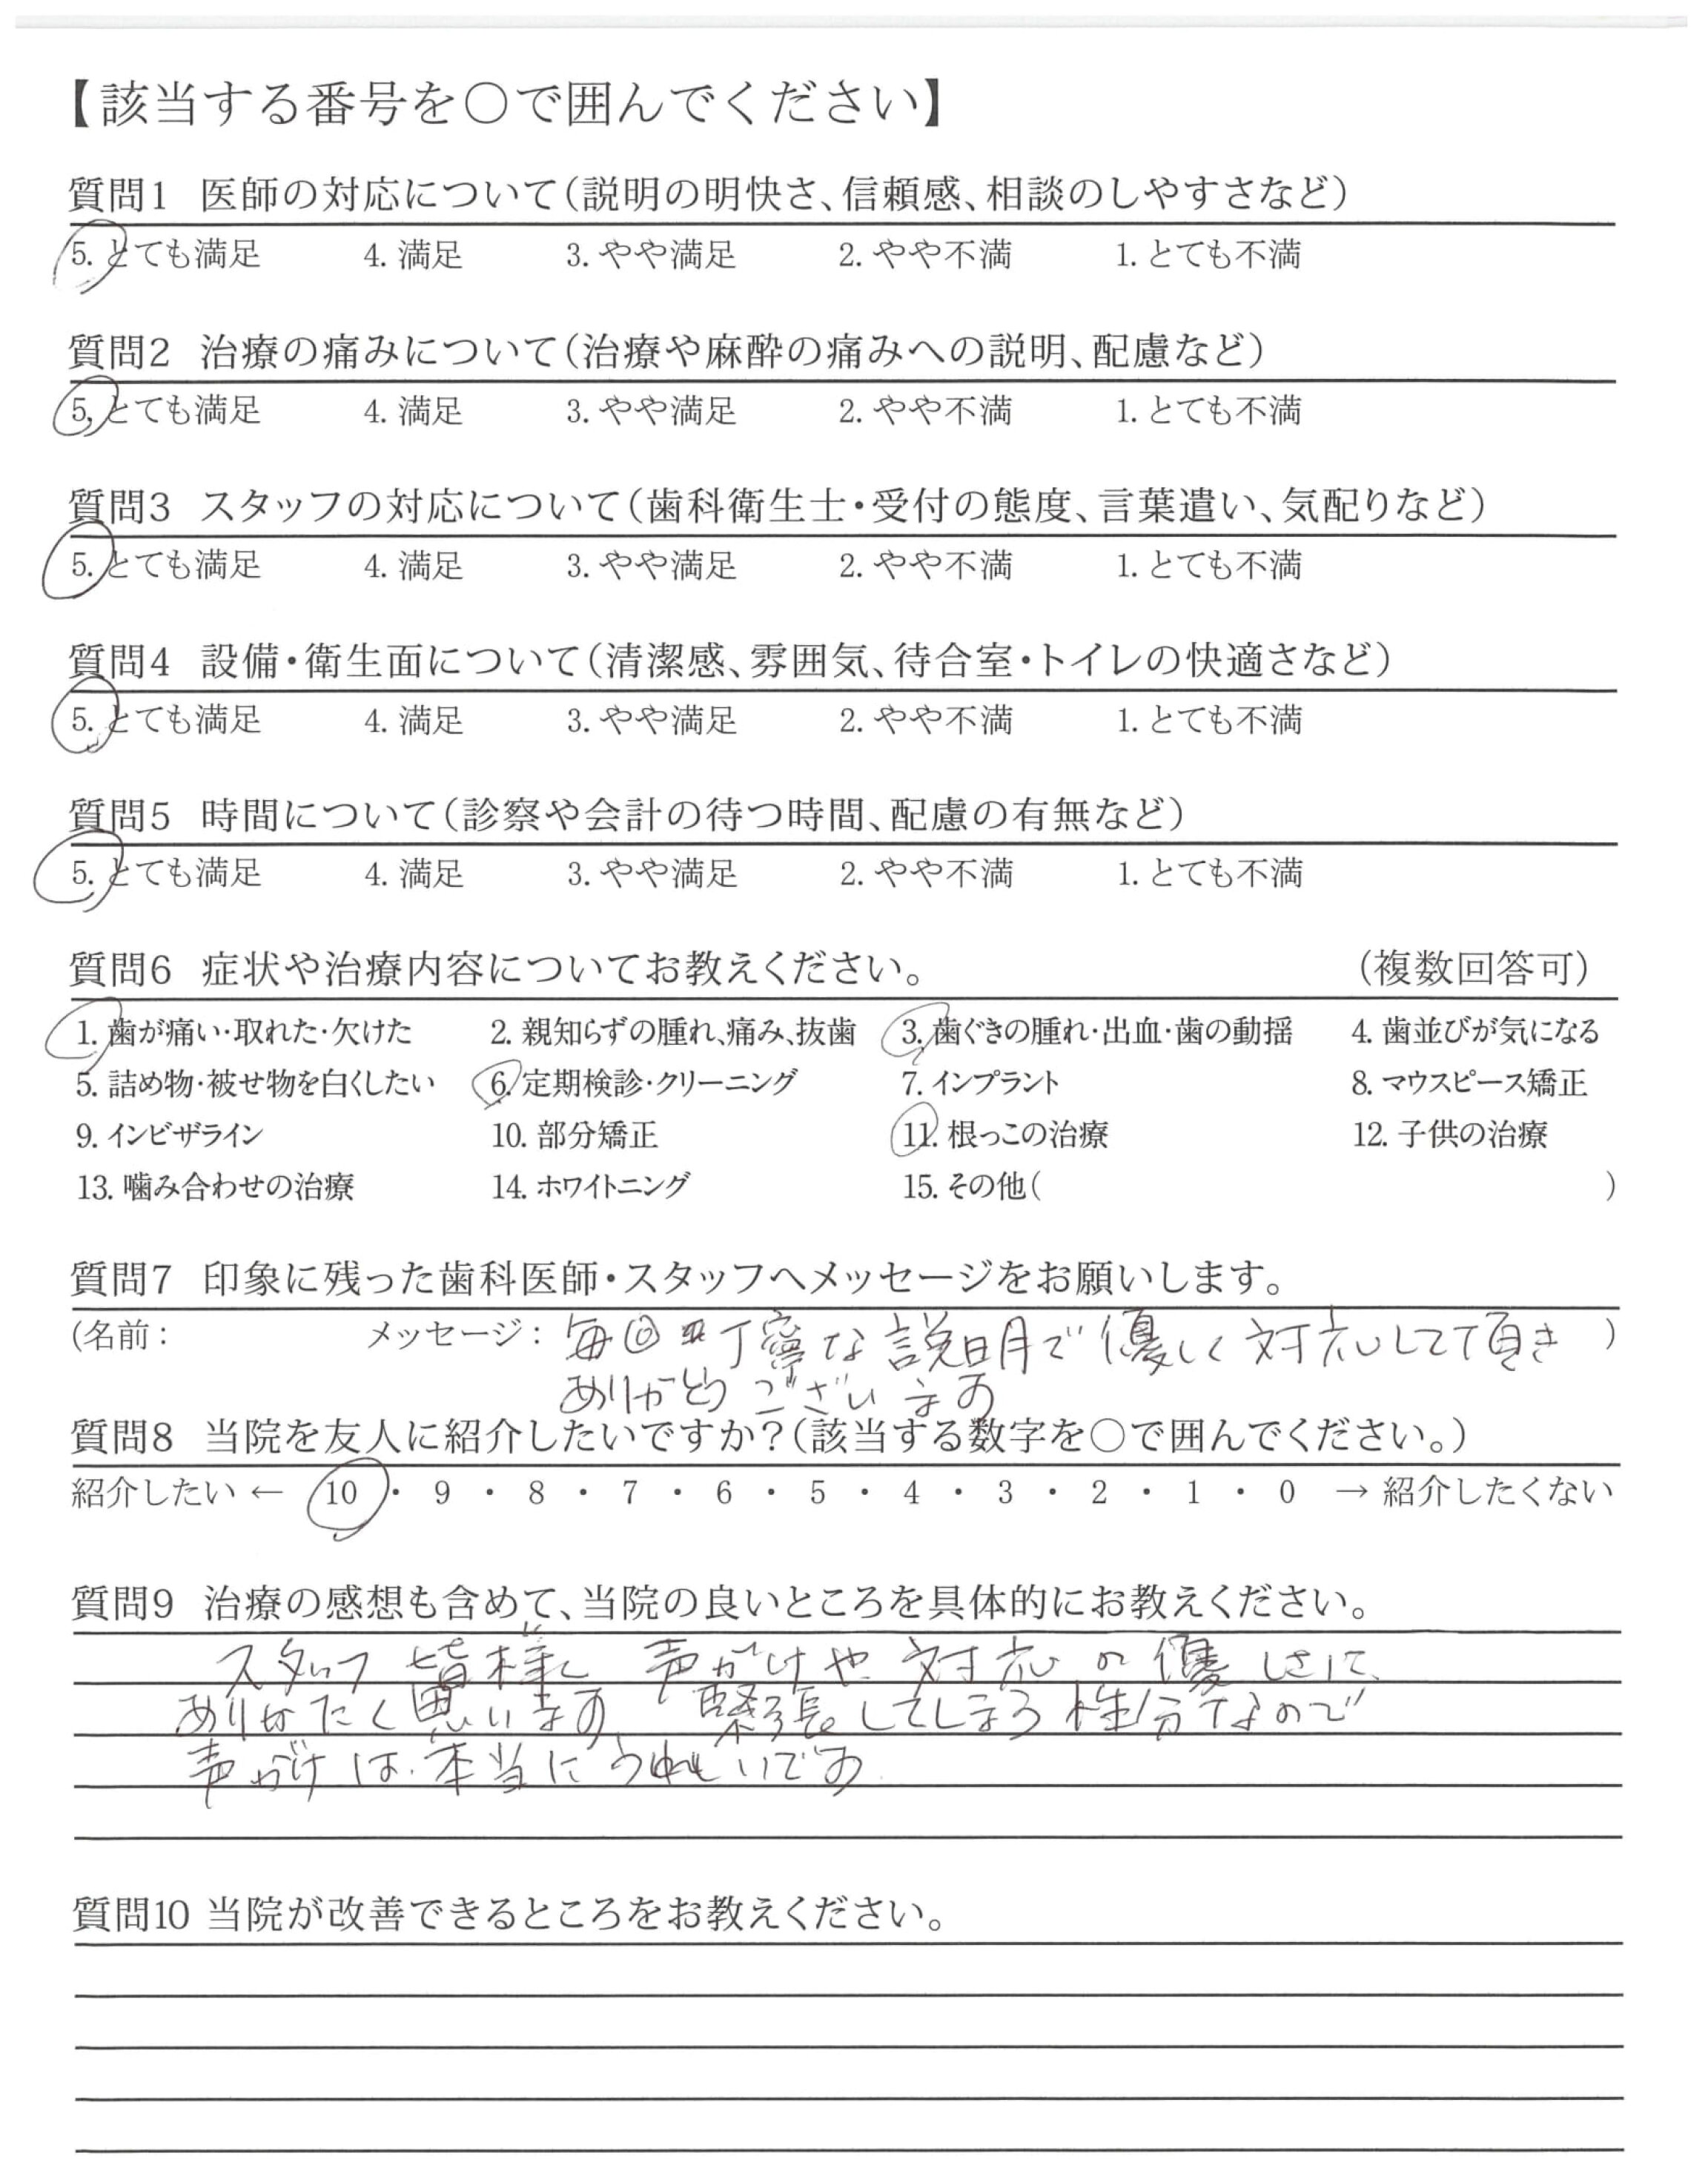 【該当する番号を○で囲んでください】
質問1 医師の対応について(説明の明快さ、信頼感、相談のしやすさなど)
5. とても満足 4. 満足 3. やや満足 2. やや不満 1. とても不満
質問2 治療の痛みについて(治療や麻酔の痛みへの説明、配慮など)
5. とても満足 4. 満足 3. やや満足 2. やや不満 1. とても不満
質問3 スタッフの対応について(歯科衛生士・受付の態度、言葉遣い、気配りなど)
5. とても満足 4. 満足 3. やや満足 2. やや不満 1. とても不満
質問4 設備・衛生面について(清潔感、雰囲気、待合室・トイレの快適さなど)
5. とても満足 4. 満足 3. やや満足 2. やや不満 1. とても不満
質問5 時間について(診察や会計の待つ時間、配慮の有無など)
5. とても満足 4. 満足 3. やや満足 2. やや不満 1. とても不満
質問6 症状や治療内容についてお教えください。 (複数回答可)
1. 歯が痛い・取れた・欠けた 2. 親知らずの腫れ、痛み、抜歯 3. 歯ぐきの腫れ・出血・歯の動揺 4. 歯並びが気になる
5. 詰め物・被せ物を白くしたい 6. 定期検診・クリーニング 7. インプラント 8. マウスピース矯正
9. インビザライン 10. 部分矯正 11. 根っこの治療 12. 子供の治療
13. 噛み合わせの治療 14. ホワイトニング 15. その他( )
質問7 印象に残った歯科医師・スタッフへメッセージをお願いします。
(名前: メッセージ: 毎回 丁寧な説明で優しく対応して頂き )
ありがとうございます
質問8 当院を友人に紹介したいですか?(該当する数字を○で囲んでください。)
紹介したい ← 10 ・ 9 ・ 8 ・ 7 ・ 6 ・ 5 ・ 4 ・ 3 ・ 2 ・ 1 ・ 0 → 紹介したくない
質問9 治療の感想も含めて、当院の良いところを具体的にお教えください。
スタッフ 皆様 声がけや 対応の優しさに、
ありがたく思います 緊張してしまう性分なので
声がけは 本当にうれしいです
質問10 当院が改善できるところをお教えください。